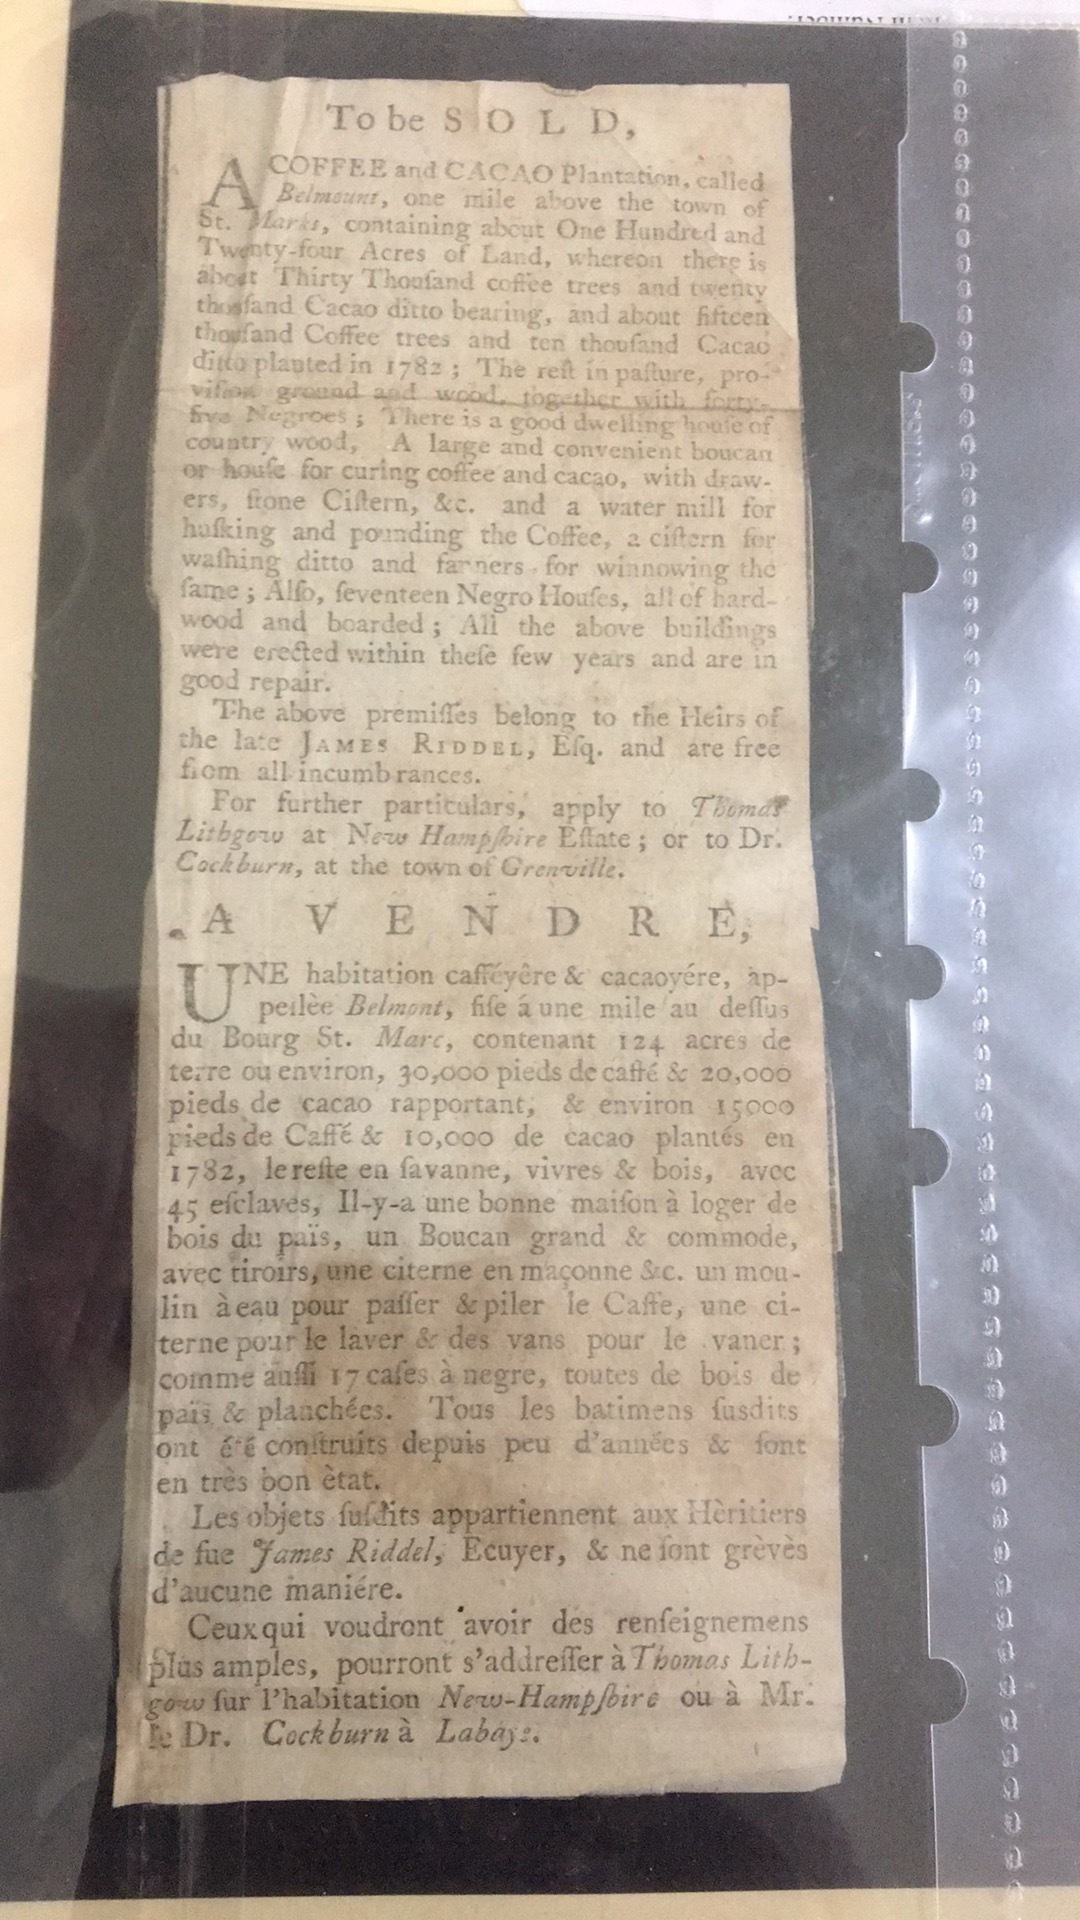 To be SOLD,
A COFFEE and CACAO Plantation, called
Belmount, one mile above the town of
St. Marks, containing about One Hundred and
Twenty-four Acres of Land, whereon there is
about Thirty Thouſand coffee trees and twenty
thouſand Cacao ditto bearing, and about fifteen
thouſand Coffee trees and ten thouſand Cacao
ditto planted in 1782; The reſt in paſture, pro-
viſion ground and wood, together with forty-
five Negroes; There is a good dwelling houſe of
country wood, A large and convenient boucan
or houſe for curing coffee and cacao, with draw-
ers, ſtone Ciſtern, &c. and a water mill for
huſking and pounding the Coffee, a ciſtern for
waſhing ditto and fanners for winnowing the
ſame; Alſo, ſeventeen Negro Houſes, all of hard-
wood and boarded; All the above buildings
were erected within theſe few years and are in
good repair.
The above premiſſes belong to the Heirs of
the late JAMES RIDDEL, Eſq. and are free
from all incumbrances.
For further particulars, apply to Thomas
Lithgow at New Hampſhire Eſtate; or to Dr.
Cockburn, at the town of Grenville.
A VENDRE,
UNE habitation cafféyêre & cacaoyére, ap-
pellèe Belmont, ſiſe á une mile au deſſus
du Bourg St. Marc, contenant 124 acres de
terre ou environ, 30,000 pieds de caffé & 20,000
pieds de cacao rapportant, & environ 15000
pieds de Caffé & 10,000 de cacao plantés en
1782, le reſte en ſavanne, vivres & bois, avec
45 eſclaves, Il-y-a une bonne maiſon à loger de
bois du païs, un Boucan grand & commode,
avec tiroirs, une citerne en maçonne &c. un mou-
lin à eau pour paſſer & piler le Caffe, une ci-
terne pour le laver & des vans pour le vaner;
comme auſſi 17 caſes à negre, toutes de bois de
païs & planchées. Tous les batimens ſusdits
ont été conſtruits depuis peu d'années & ſont
en très bon ètat.
Les objets ſuſdits appartiennent aux Hèritiers
de fue James Riddel, Ecuyer, & ne ſont grèvès
d'aucune maniére.
Ceux qui voudront avoir des renſeignemens
plus amples, pourront s'addreſſer à Thomas Lith-
gow ſur l'habitation New-Hampſhire ou à Mr.
le Dr. Cockburn à Labaye.